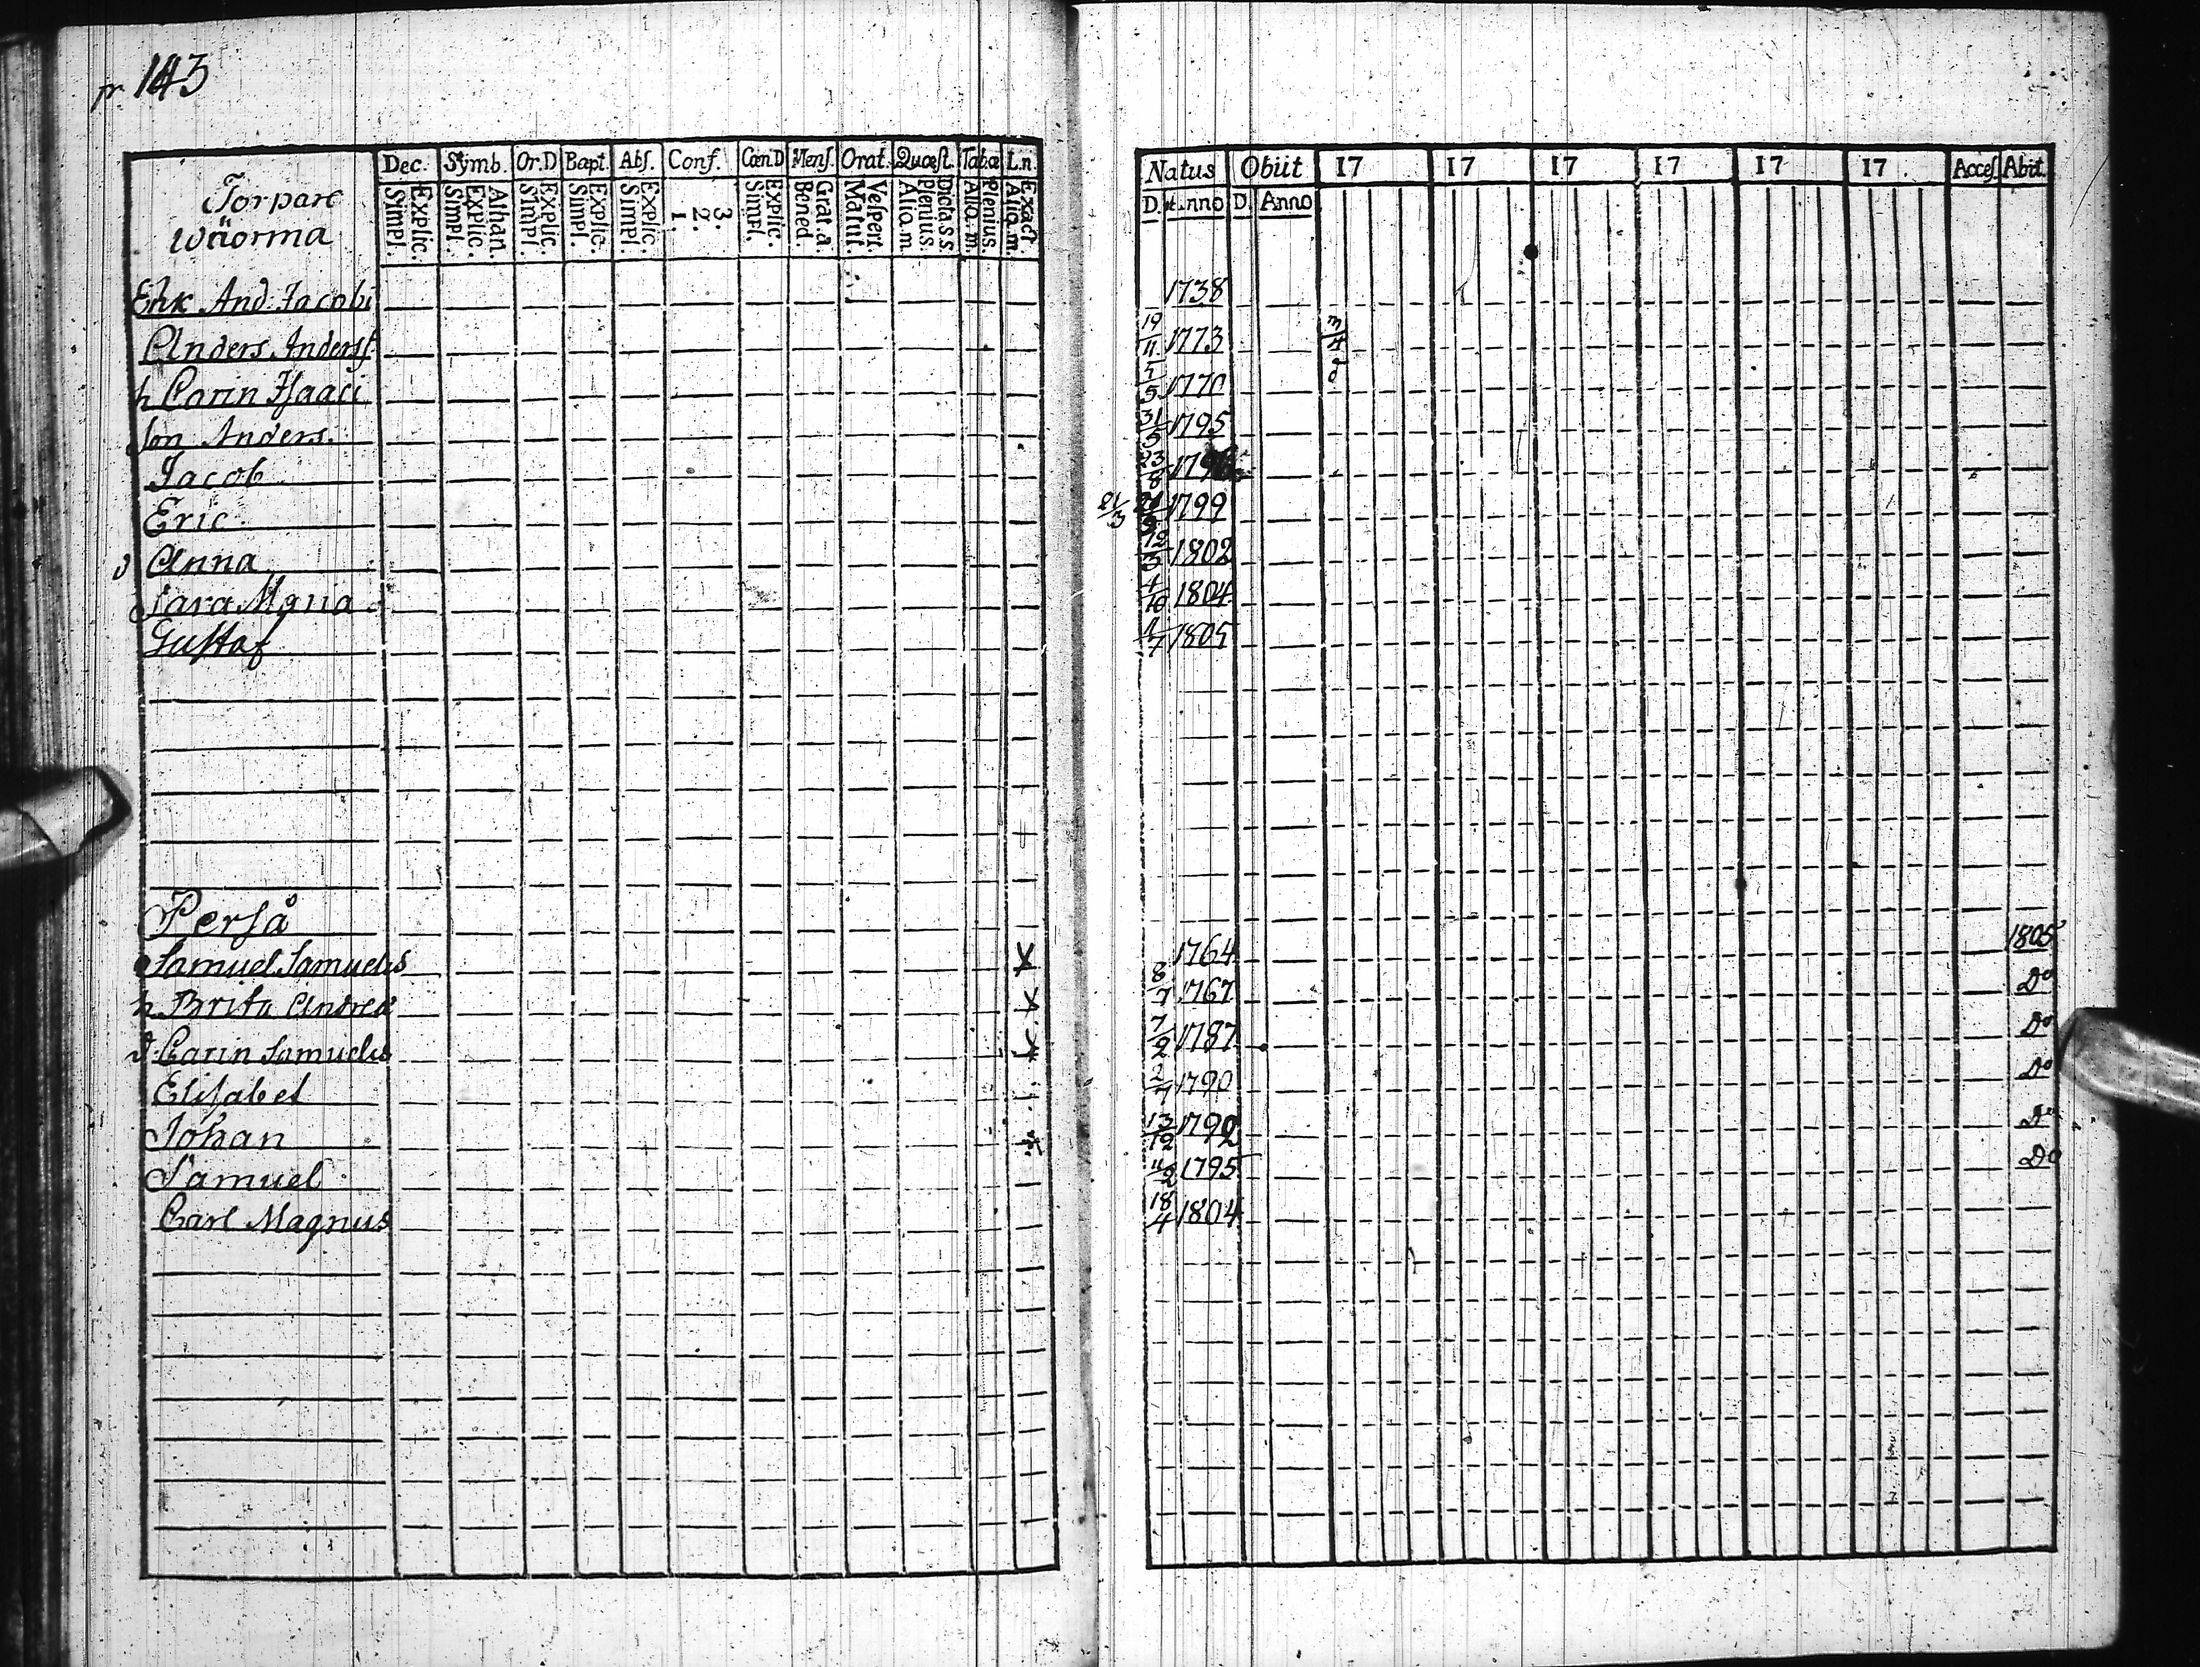 pr. 143
Dec. Symb. Or.D Bapt. Abſ. Conf. Cœn.D Menſ. Orat. Quæſt. Tabæ L.n.
Explic. Simpl. Athan. Explic. Simpl. Explic. Simpl. Explic. Simpl. Explic. Simpl. 3. 2. 1. Explic. Simpl. Grat.a. Bened. Veſpert. Matut. Dicta s.s. Plenius. Aliq.m. Plenius. Aliq.m. Exact Aliq.m.
Torpare
Wäorma
Enk And: Jacobi
Anders Andersſ
h Carin Iſaaci
Son Anders.
Jacob
Eric
d Anna
Sara Mgna
Guſtaf
Perſå
Samuel Samuels
h Brita Andreæ
d: Carin Samuels
Eliſabet
Johan
Samuel
Carl Magnus
Natus Obiit 17 17 17 17 17 17 Acceſ. Abit.
D. et Anno D. Anno
1738
19/11 1773 3/4
5 1770
31/5 1795
23/8 1796
21/3 1799
1802
4/10 1804
1/7 1805
1764 1805
8/7 1767 Do
7/2 1787 Do
2/7 1790 Do
13/12 1792 Do
11/2 1795 Do
18/4 1804